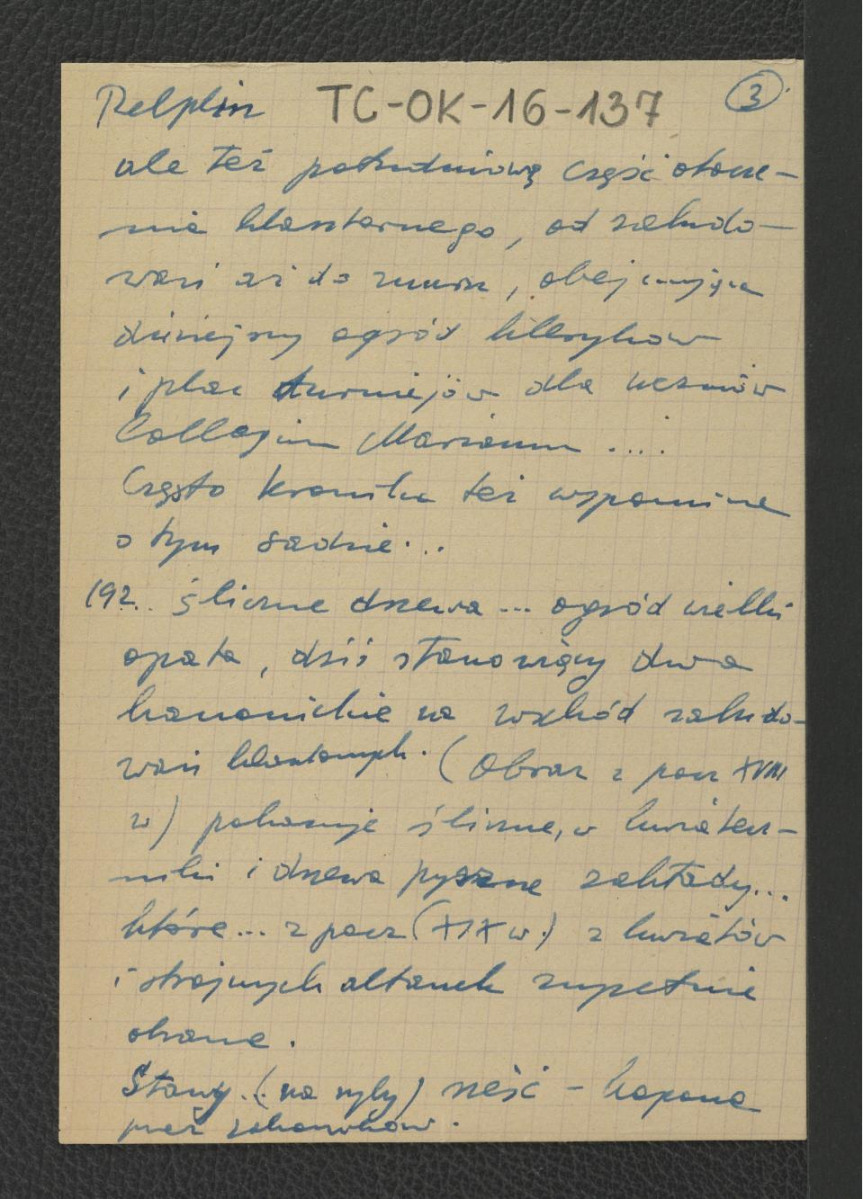 Pelplin TC-OK-16-137 3
ale też południową część otocze-
nia klasztornego, od zabudo-
wań aż do muru, obejmująca
dzisiejszy ogród kleryków
i plac turniejów dla uczniów
Collegium Marianum ....
Często kronika też wspomina
o tym sadzie...
192.. śliczne drzewa ... ogród wielki
opata, dziś stanowiący dwa
kanonickie na wschód zabudo-
wań klasztornych. (Obraz z pocz XVIII
w) pokazuje śliczne, w kwiater-
niki i drzewa pyszne zakłady...
które... z pocz (XIX w.) z kwiatów
i strojnych altanek zupełnie
obrane.
Stawy.. (na ryby) sześć - kopane
przez zakonników.